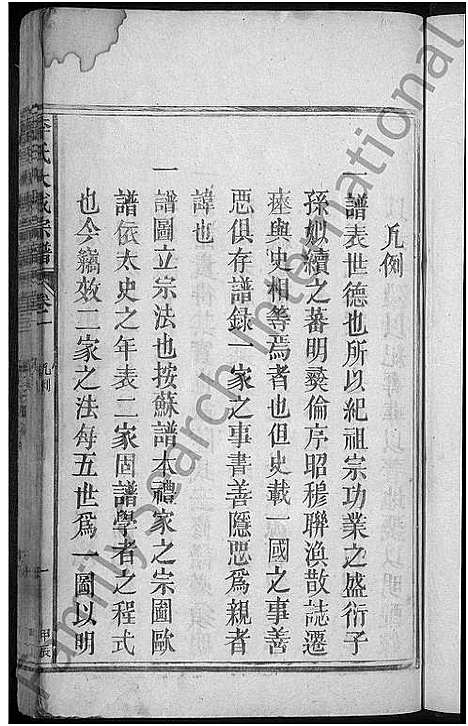 凡例
一譜表世德也所以紀祖宗功業之盛衍子
孫妙續之蕃明彝倫序昭穆聯渙散誌遷
瘞與史相等焉者也但史載一國之事善
惡俱存譜錄一家之事書善隱惡為親者
諱也
一譜圖立宗法也按蘇譜本禮家之宗圖歐
譜依太史之年表二家固譜學者之程式
也今竊效二家之法每五世為一圖以明
李氏大成宗譜 卷一 凡例 一 甲辰
Familysearch International